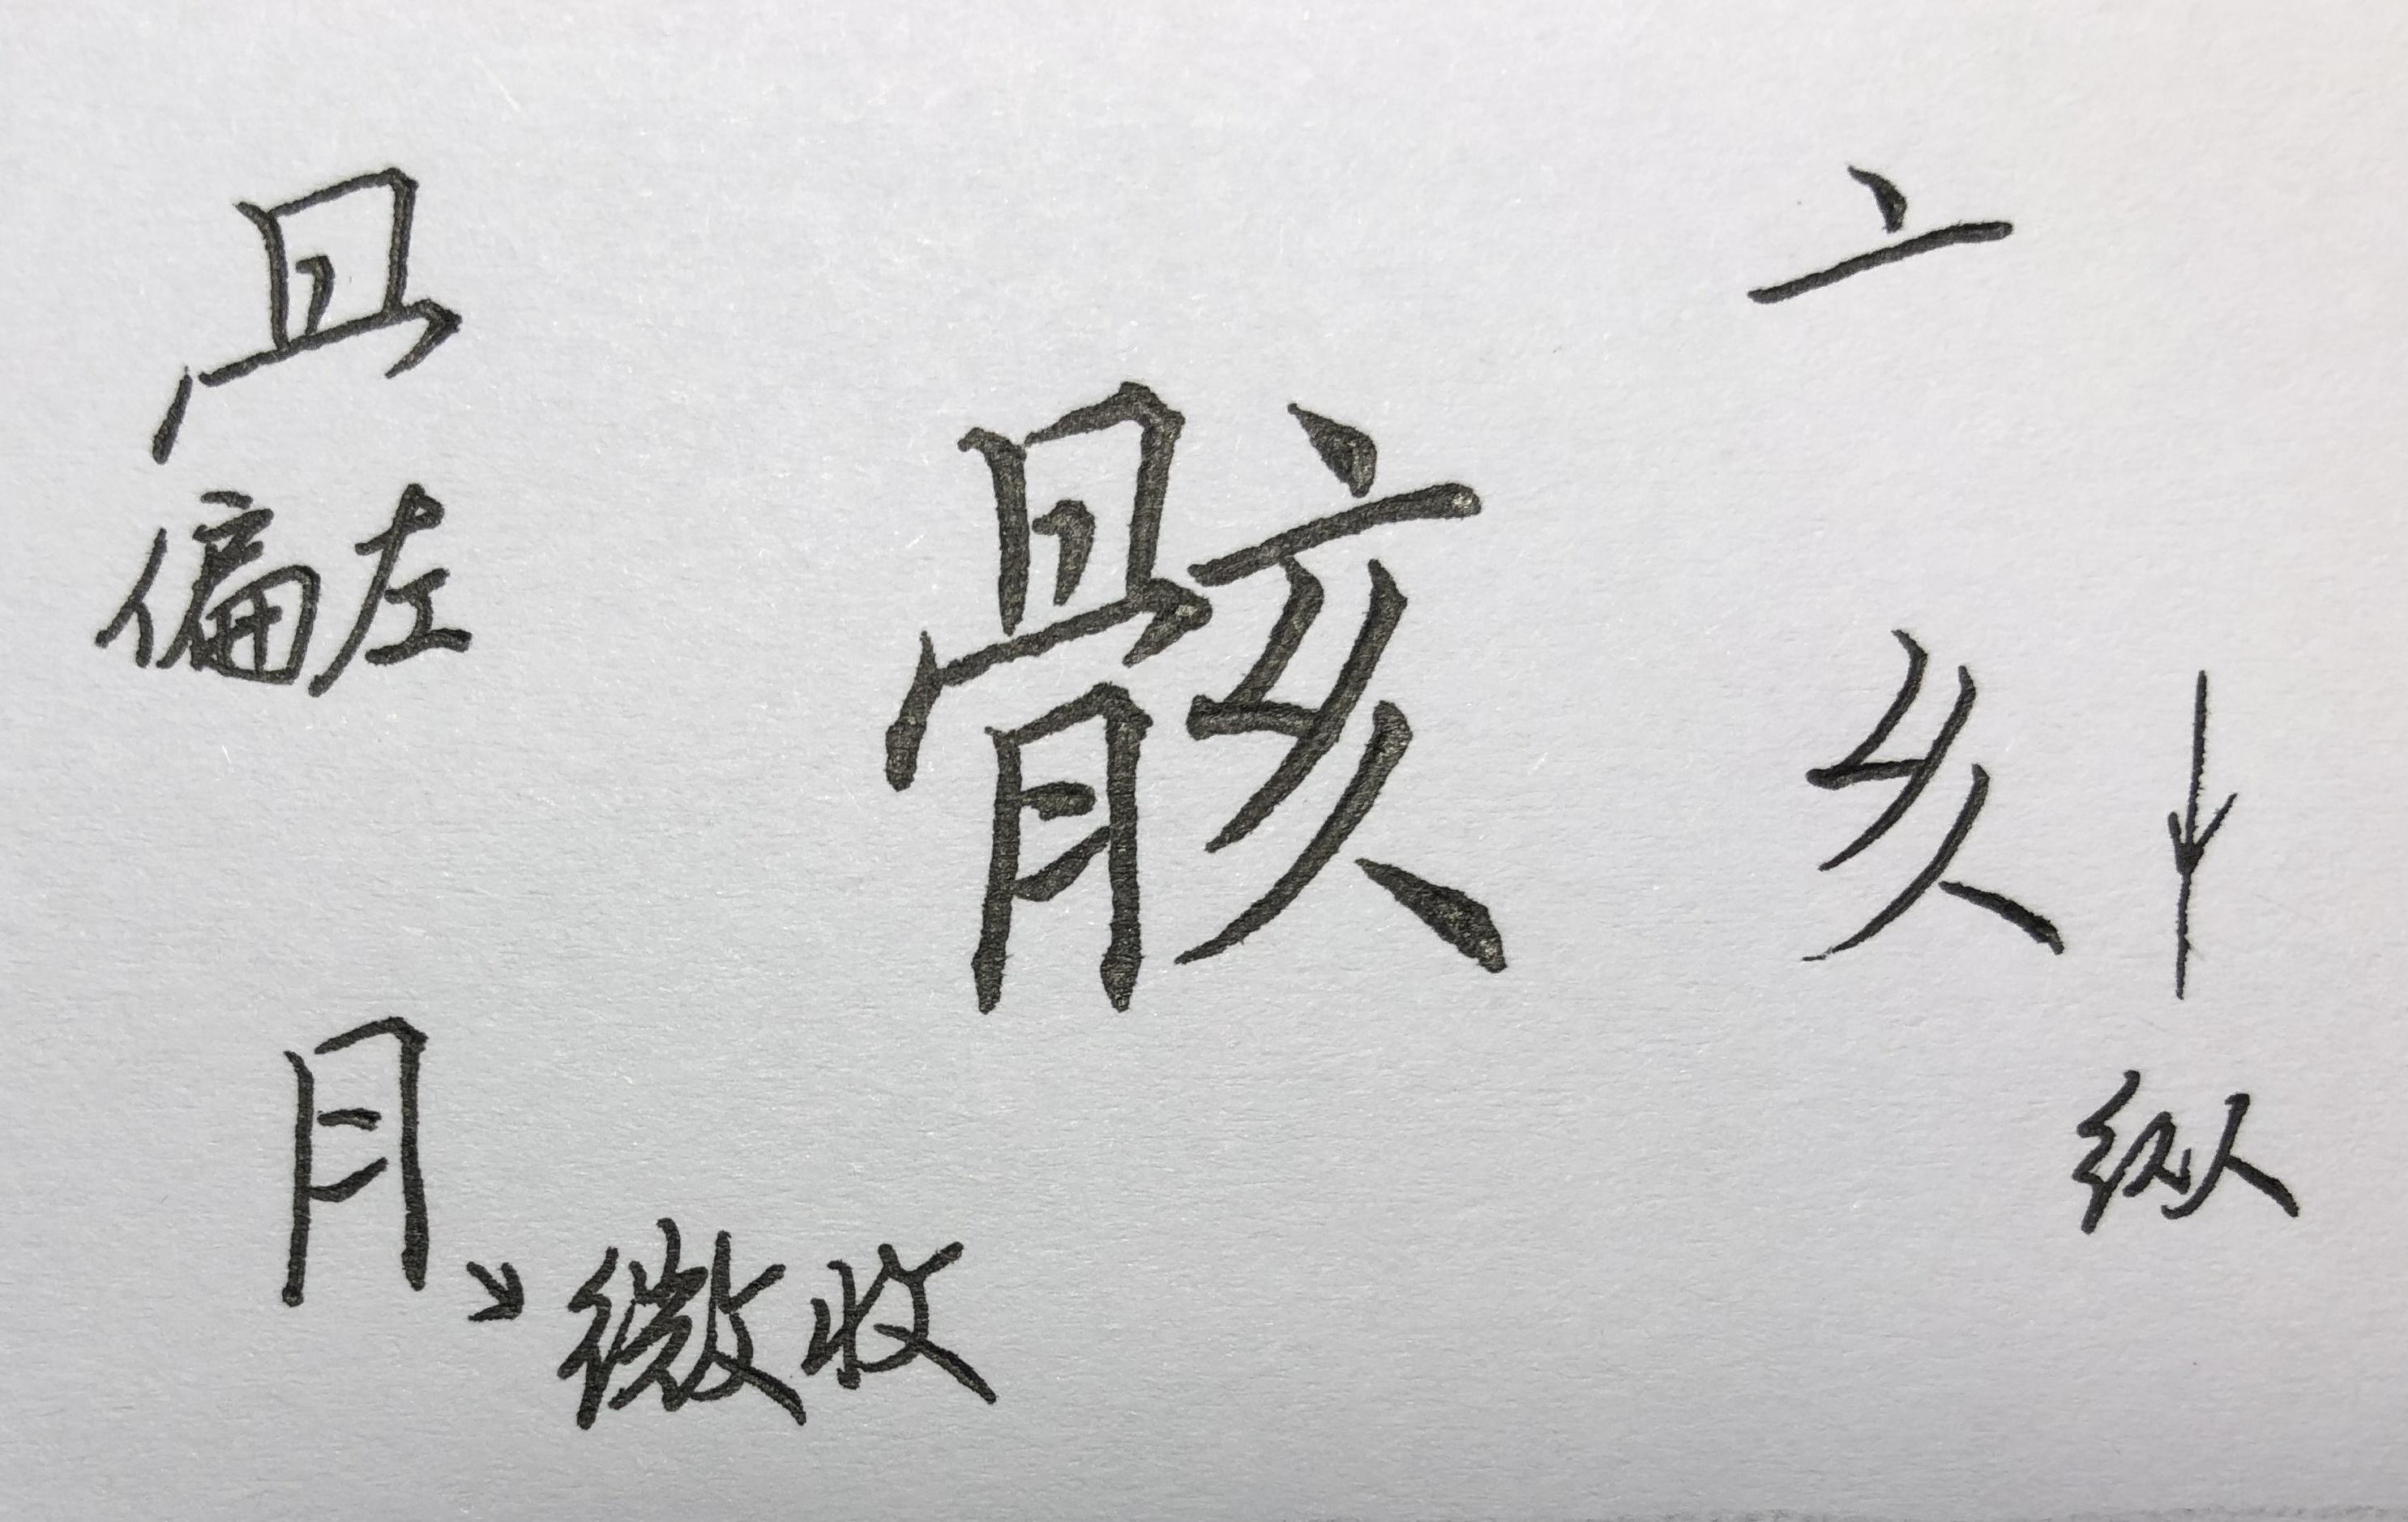 偏左
骸
亠
纵
月
微收